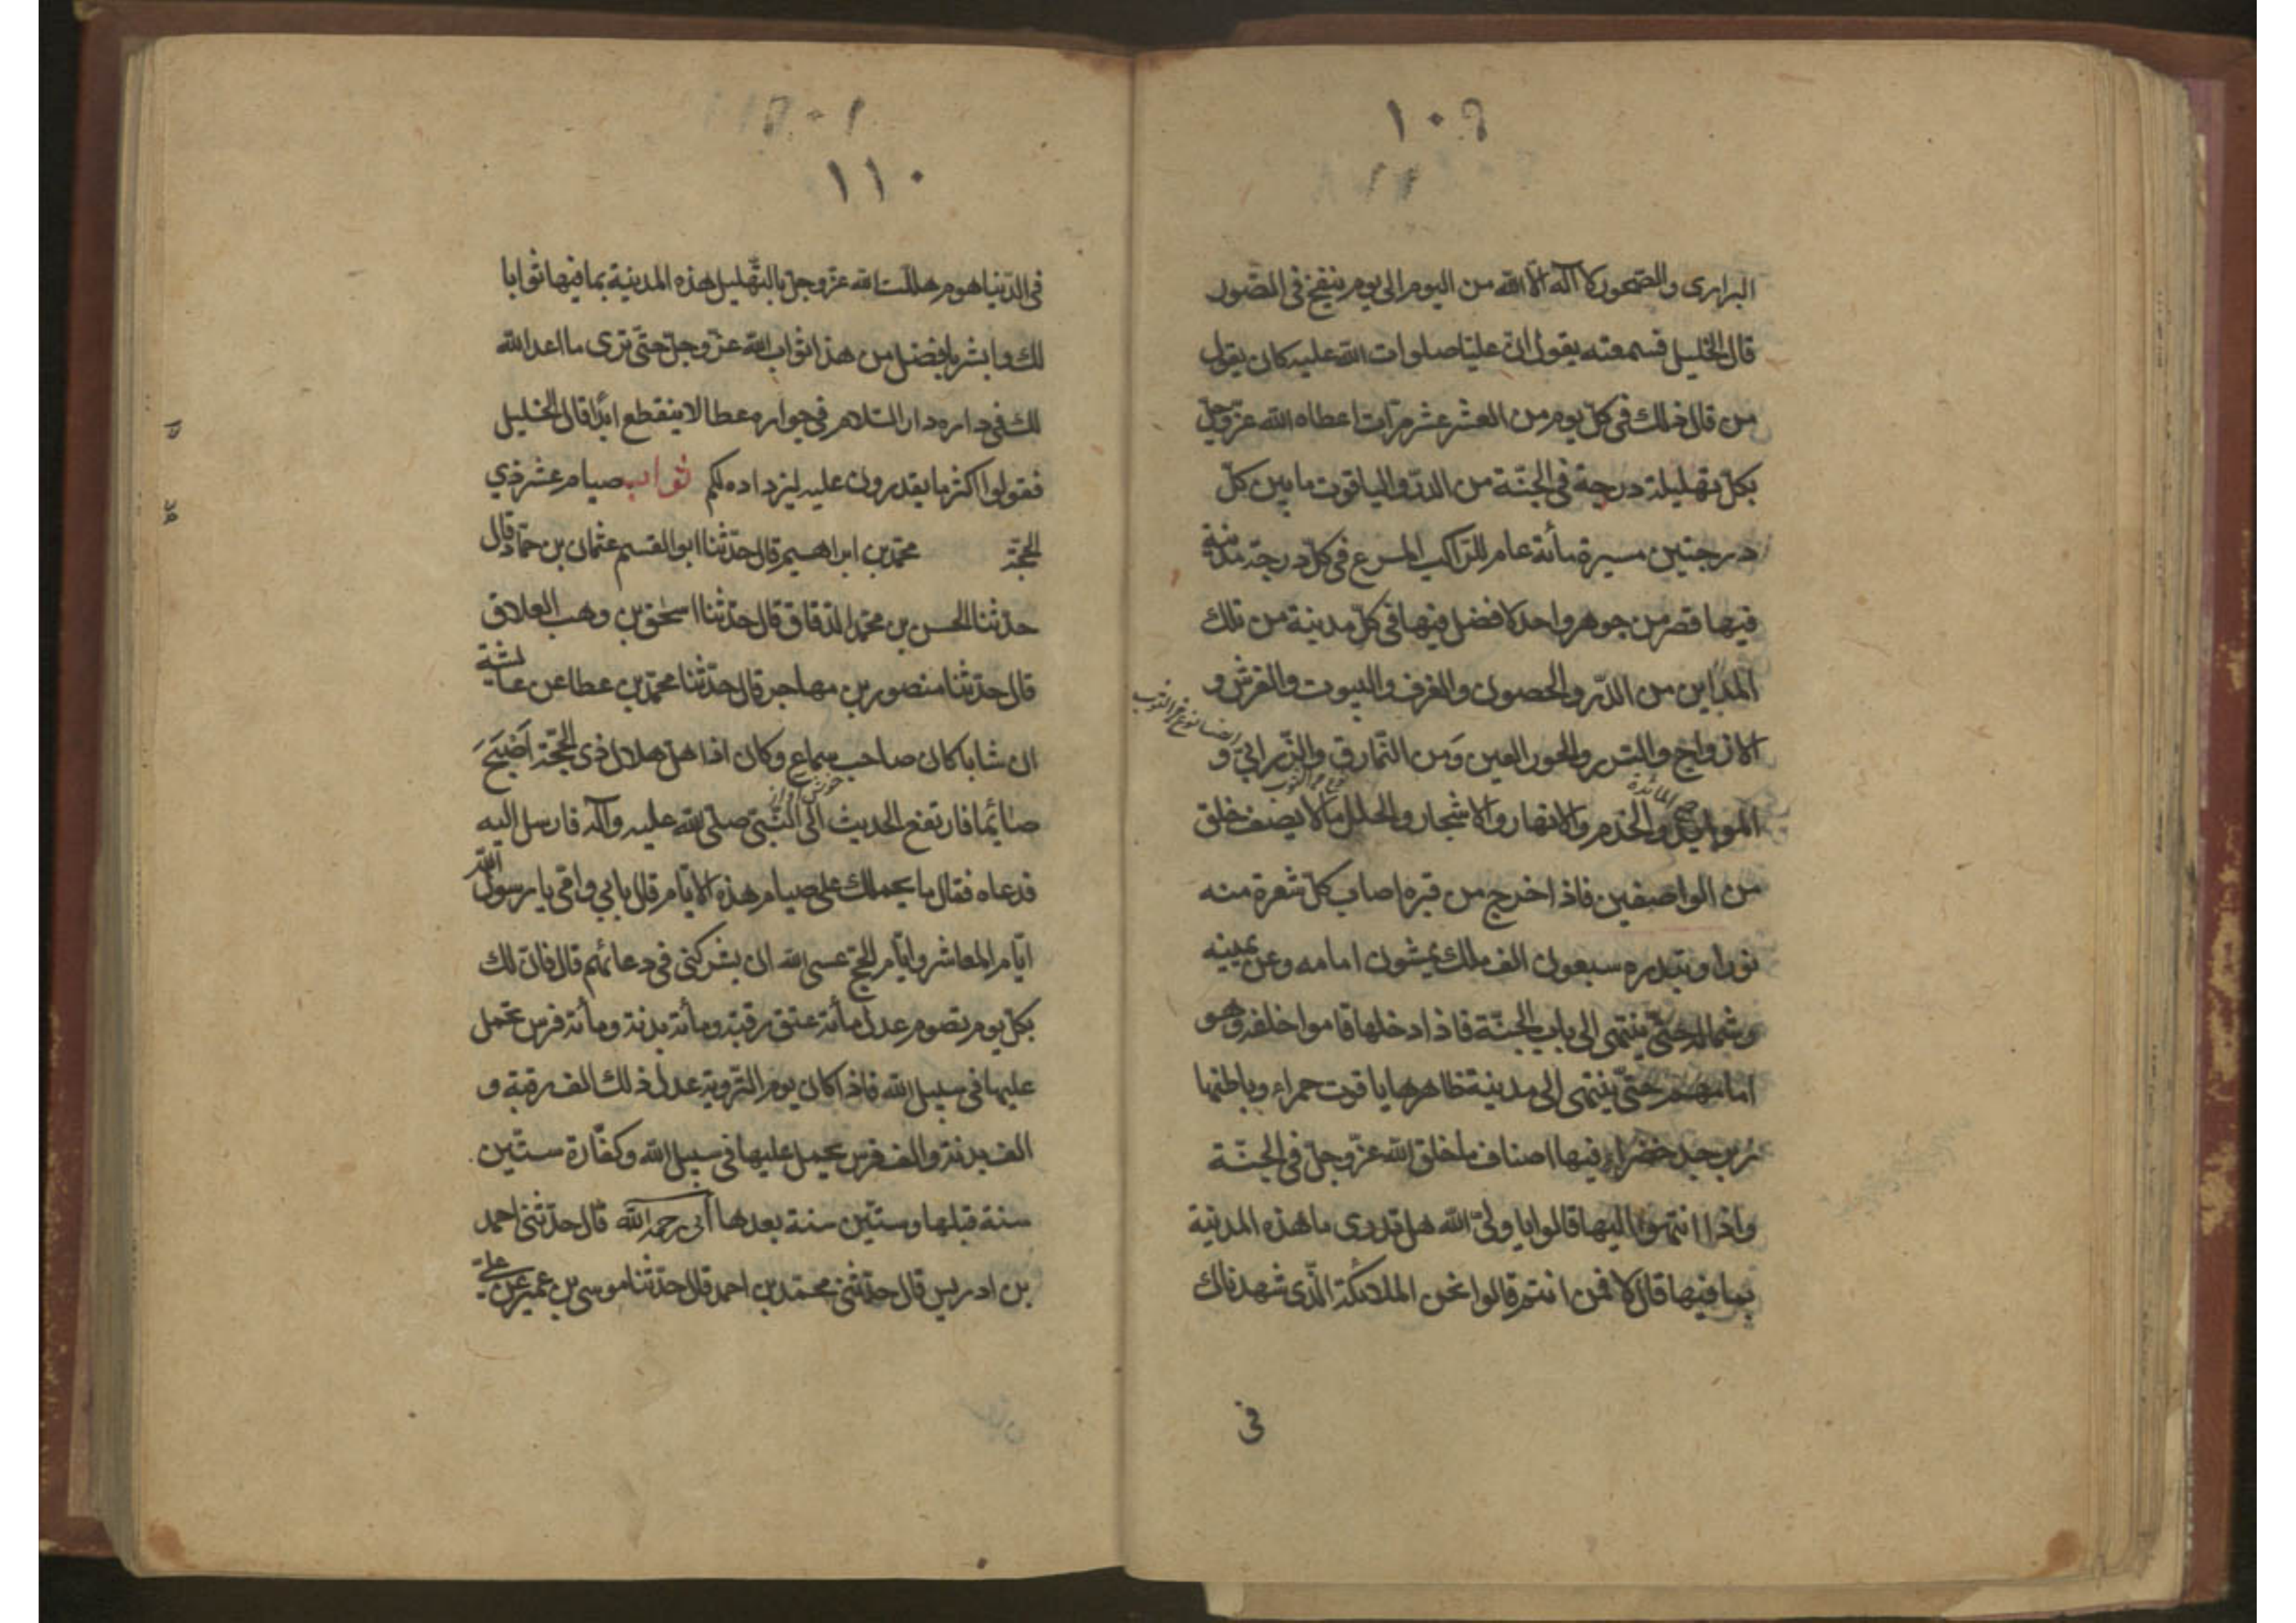 ١٠٩
البرارى والصخور لا اله الا الله من اليوم الى يوم ينفخ فى الصّور
قال الخليل فسمعته يقول انّ عليّا صلوات الله عليه كان يقول
من قال ذلك فى كلّ يوم من العشر عشر مرّات اعطاه الله عزّ وجلّ
بكلّ تهليلة درجة فى الجنّة من الدرّ والياقوت ما بين كلّ
درجتين مسيرة مأئة عام للرّاكب المسرع فى كلّ درجة مدينة
فيها قصر من جوهر واحد لا فضل فيها فى كلّ مدينة من تلك
المداين من الدّر والحصون والغرف والبيوت والفرش و
الازواج والسّرر والحور العين ومن النّمارق والزّرابىّ و
الموايد والخدم والانهار والاشجار والحلل ما لا يصف خلق
من الواصفين فاذا خرج من قبره اصاب كلّ شعرة منه
نورا وتبدره سبعون الف ملك يمشون امامه وعن يمينه
وشماله حتّى ينتهى الى باب الجنّة فاذا دخلها قاموا خلفه وهو
امامهم حتّى ينتهى الى مدينة ظاهرها ياقوت حمراء وباطنها
زبرجد خضراء فيها اصناف ما خلق الله عزّ وجلّ فى الجنّة
واذا انتهوا اليها قالوا يا ولىّ الله هل تدرى ما هذه المدينة
بما فيها قال لا فمن انتم قالوا نحن الملائكة الّذى شهدناك
فى
١١٠
فى الدّنيا يوم هلّلت الله عزّ وجلّ بالتّهليل هذه المدينة بما فيها ثوابا
لك وابشر بافضل من هذا ثواب الله عزّ وجلّ حتّى ترى ما اعد الله
لك فى داره دار السّلام فى جواره عطا لا ينقطع ابدًا قال الخليل
فقولوا اكثر ما يقدرون عليه ليزداده لكم ثواب صيام عشر ذي
الحجّة محمّد بن ابراهيم قال حدّثنا ابو القسم عثمان بن حمّاد قال
حدّثنا الحسن بن محمّد الدّقاق قال حدّثنا اسحٰق بن وهب العلاق
قال حدّثنا منصور بن مهاجر قال حدّثنا محمّد بن عطا عن عائشة
ان شابا كان صاحب سماع وكان اذا هلّ هلال ذى الحجّة اصبح
صائما فارتفع الحديث الى النّبىّ صلّى الله عليه وآله فارسل اليه
فدعاه فقال ما يحملك على صيام هذه الايّام قال بابي وامّى يا رسول الله
ايّام المعاشر وايّام الحجّ عسى الله ان يشركنى فى دعائهم قال فانّ لك
بكلّ يوم تصوم عدل مأئة عتق رقبة ومأئة بدنة ومأئة فرس تحمل
عليها فى سبيل الله فاذا كان يوم التّروية عدل ذلك الف رقبة و
الف بدنة والف فرس يحمل عليها فى سبيل الله وكفّارة ستّين
سنة قبلها وستّين سنة بعدها أبى رحمه الله قال حدّثنى احمد
بن ادريس قال حدّثنى محمّد بن احمد قال حدّثنا موسى بن عمير عن علىّ